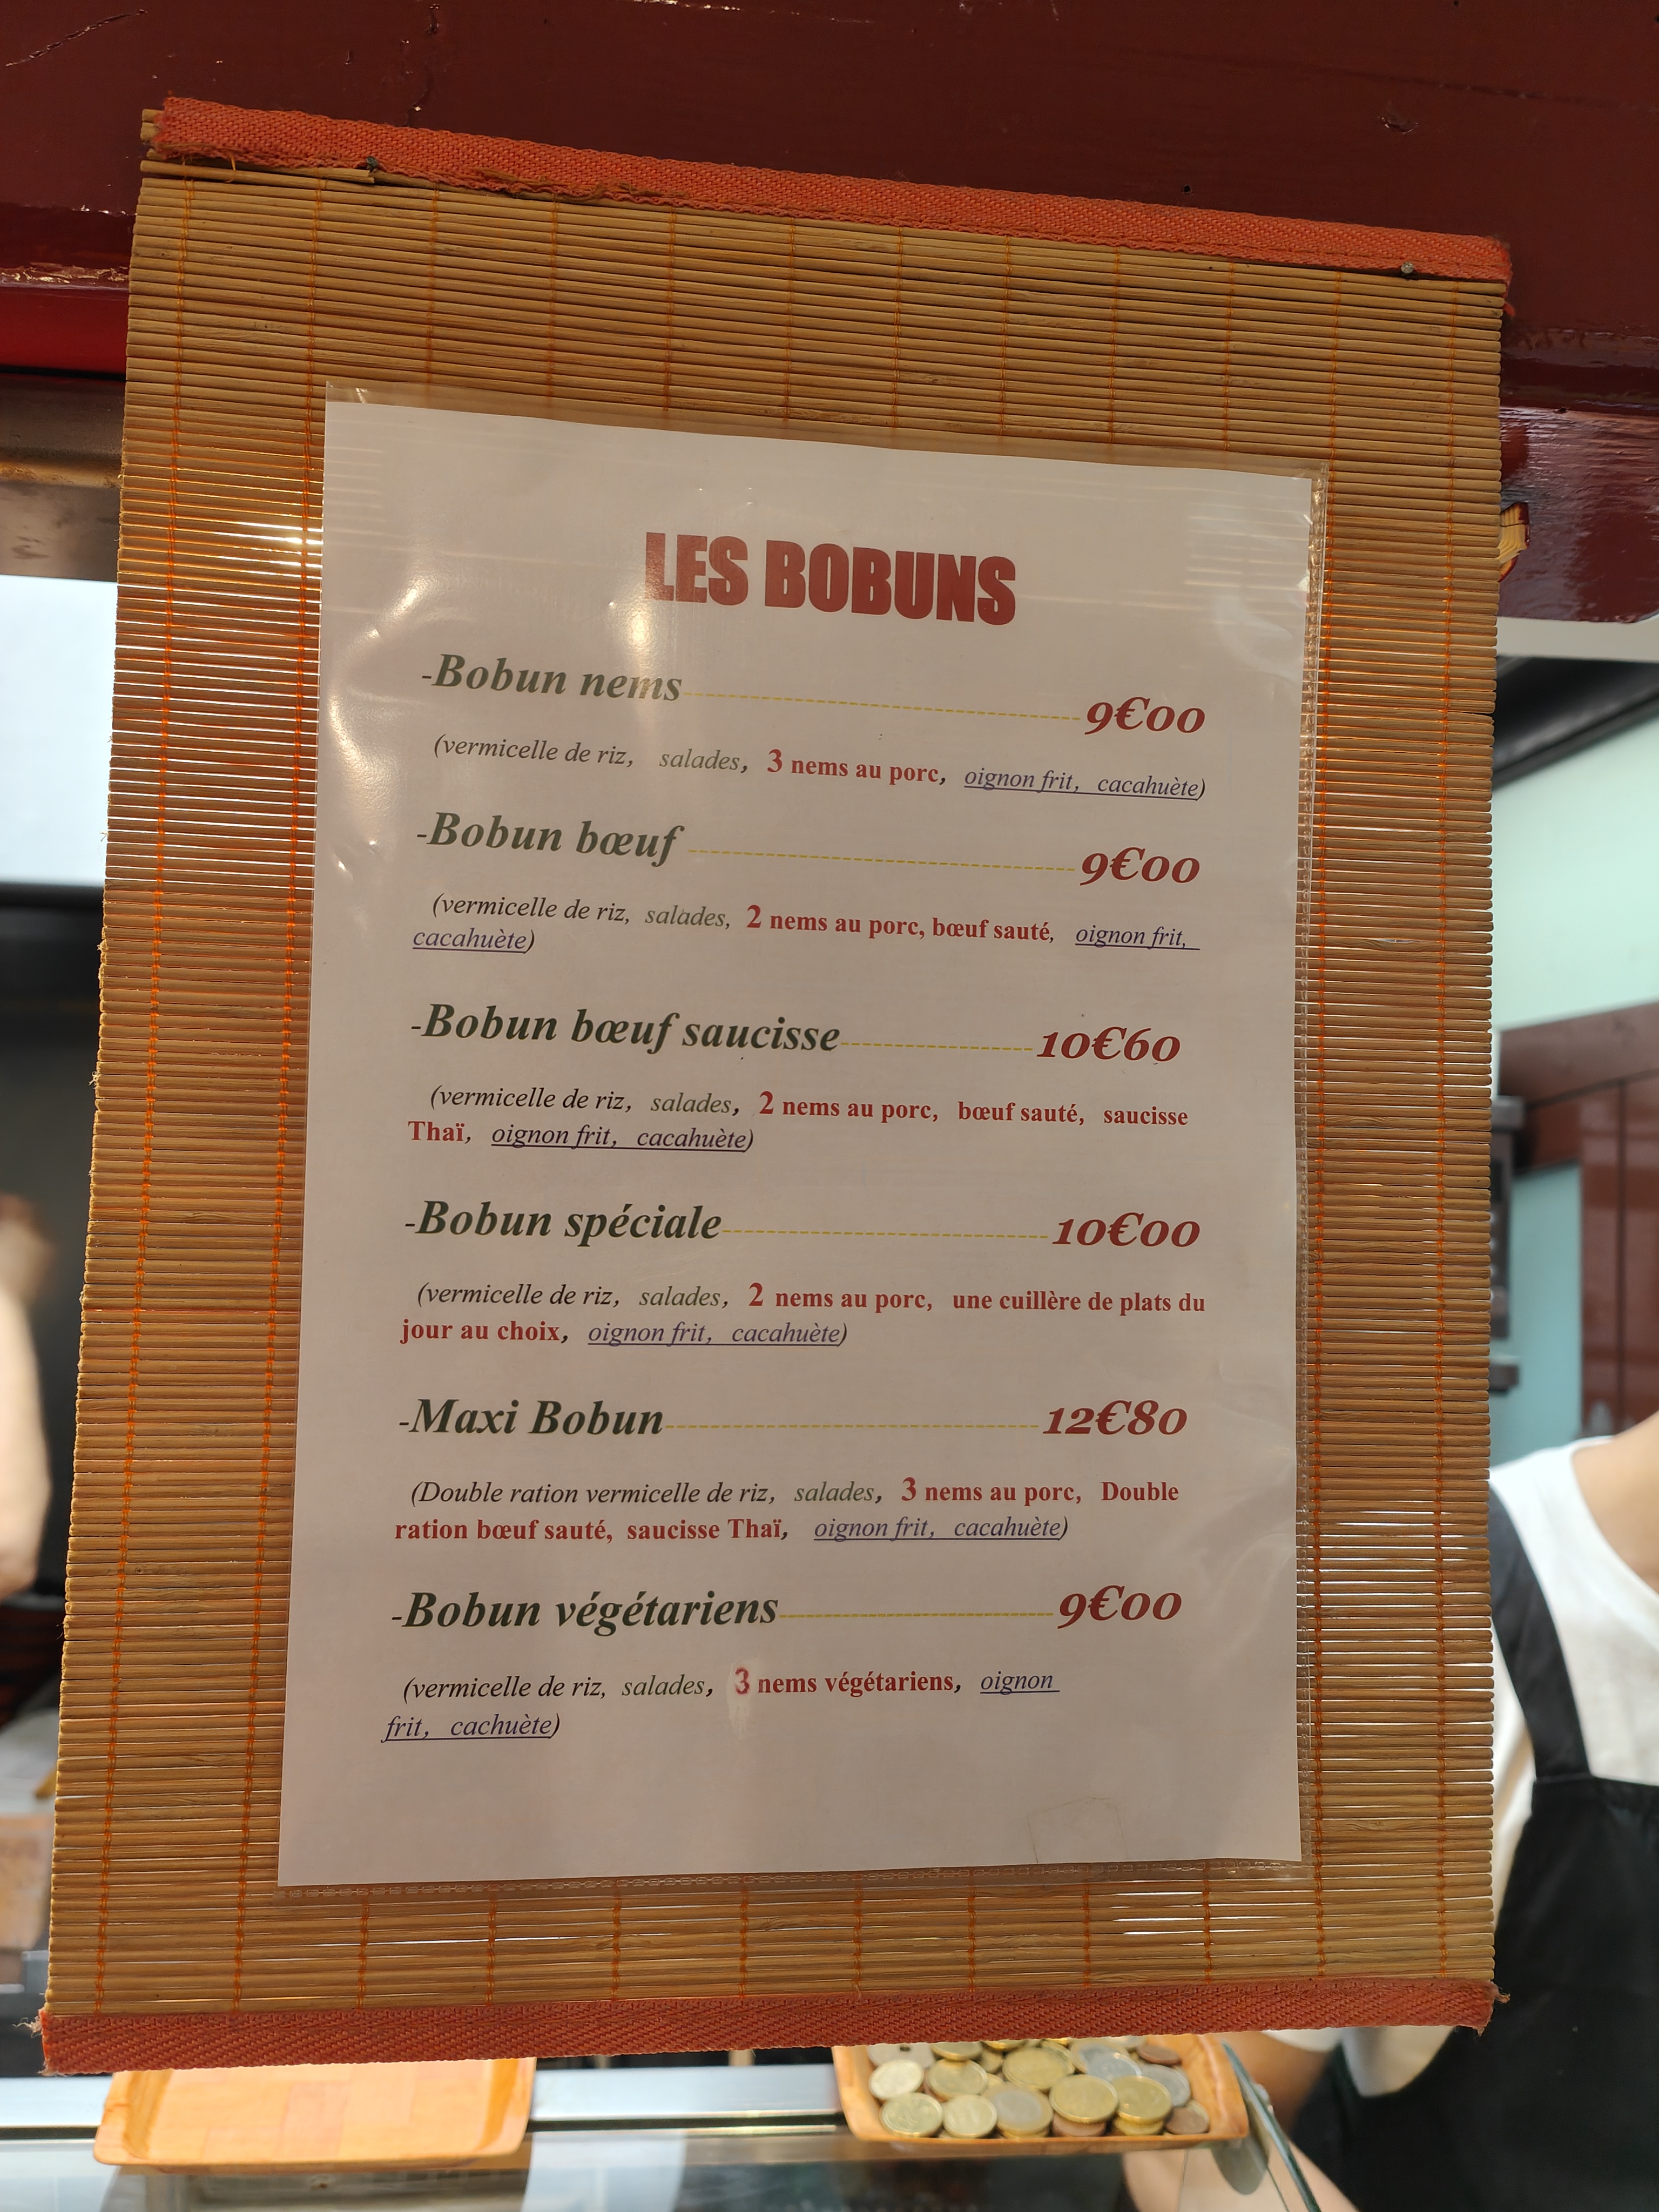 LES BOBUNS
-Bobun nems----------------------------------------9€00
(vermicelle de riz, salades, 3 nems au porc, oignon frit, cacahuète)
-Bobun bœuf ---------------------------------------9€00
(vermicelle de riz, salades, 2 nems au porc, bœuf sauté, oignon frit,
cacahuète)
-Bobun bœuf saucisse-------------------10€60
(vermicelle de riz, salades, 2 nems au porc, bœuf sauté, saucisse
Thaï, oignon frit, cacahuète)
-Bobun spéciale---------------------------------10€00
(vermicelle de riz, salades, 2 nems au porc, une cuillère de plats du
jour au choix, oignon frit, cacahuète)
-Maxi Bobun--------------------------------------12€80
(Double ration vermicelle de riz, salades, 3 nems au porc, Double
ration bœuf sauté, saucisse Thaï, oignon frit, cacahuète)
-Bobun végétariens----------------------------9€00
(vermicelle de riz, salades, 3 nems végétariens, oignon
frit, cachuète)